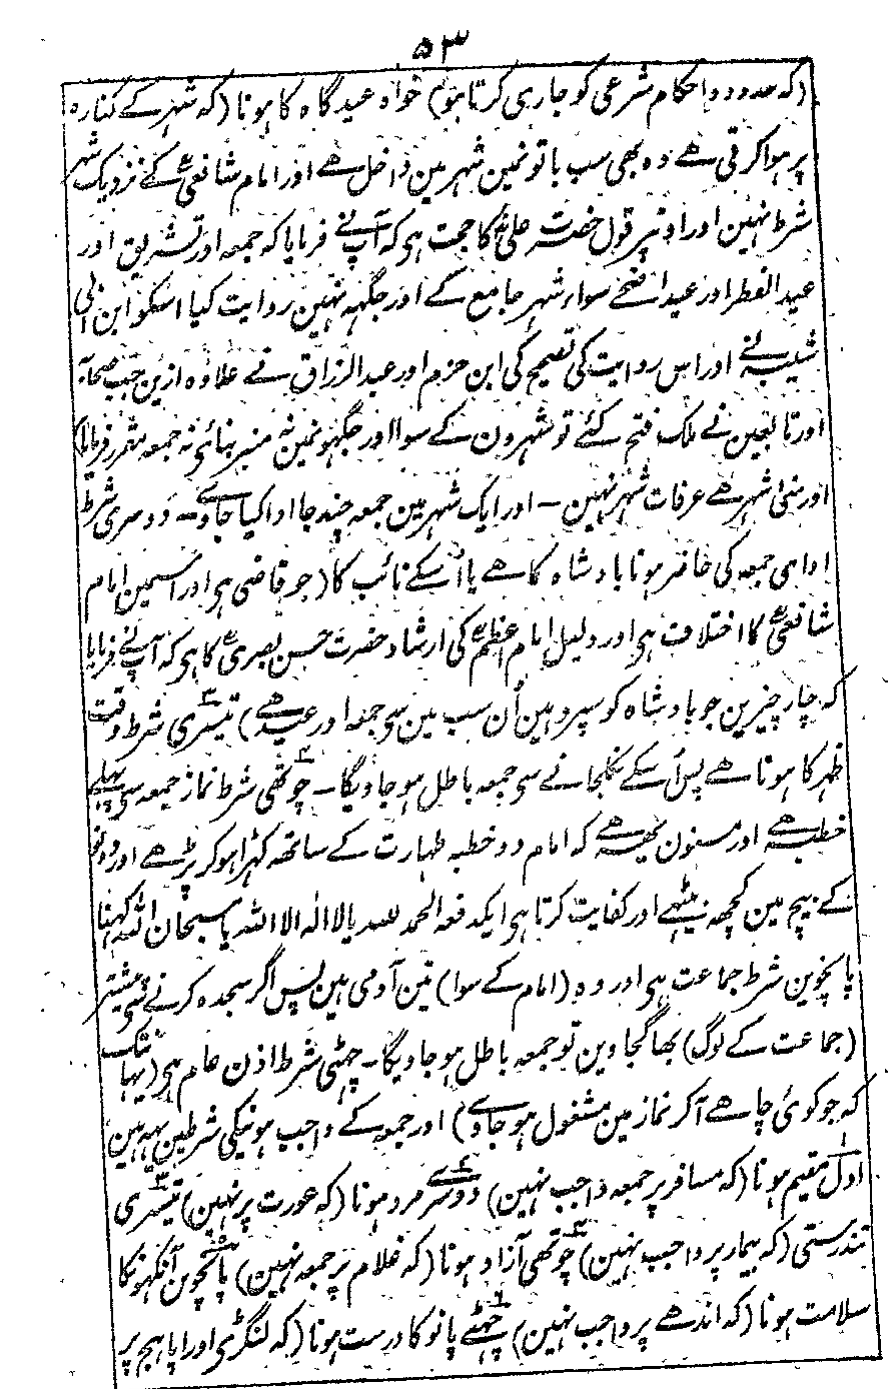 ۵۳
(کہ حدود و احکام شرعی کو جاری کرتا ہو) خواہ عید گاہ کا ہونا (کہ شہر کے کنارہ
پر ہوا کرتی ہے وہ بھی سب باتونمین شہر مین داخل ہے اور امام شافعیؒ کے نزدیک شہر
شرط نہین اور اونپر قول حضرت علیؓ کا حجت ہی کہ آپ نے فرمایا کہ جمعہ اور تشریق اور
عید الفطر اور عید اضحے سواء شہر جامع کے اور جگہہ نہین روایت کیا اسکو ابن ابی
شیبہ نے اور اس روایت کی تصحیح کی ابن حزم اور عبد الرزاق نے علاوہ ازین جب صحابہ
اور تابعین نے ملک فتح کئے تو شہرون کے سوا اور جگہونمین نہ منبر بنائی نہ جمعہ مقرر فرمایا)
اور منیٰ شہر ہے عرفات شہر نہین - اور ایک شہر مین جمعہ چند جا ادا کیا جاوے - دوسری شرط
ادای جمعہ کی حاضر ہونا بادشاہ کا ہے یا اُسکے نائب کا (جو قاضی ہی اور اسمین امام
شافعیؒ کا اختلاف ہی اور دلیل امام اعظمؒ کی ارشاد حضرت حسن بصریؒ کا ہی کہ آپ نے فرمایا
کہ چار چیزین جو بادشاہ کو سپرد ہین اُن سب مین سی جمعہ اور عید ہے) تیسری شرط وقت
ظہر کا ہونا ہے پس اُسکے نکلجانے سی جمعہ باطل ہو جاویگا - چوتھی شرط نماز جمعہ سی پہلے
خطبہ ہے اور مسنون یہہ ہے کہ امام دو خطبہ طہارت کے ساتھہ کہڑا ہو کر پڑھے اور دونو
کے بیچ مین کچھہ بیٹھے اور کفایت کرتا ہی ایکدفعہ الحمد للہ یا لا الہ الا اللہ یا سبحان اللہ کہنا
پانچوین شرط جماعت ہی اور وہ (امام کے سوا) تین آدمی ہین پس اگر سجدہ کرنے سی پیشتر
(جماعت کے لوگ) بھاگجاوین تو جمعہ باطل ہو جاویگا - چہٹی شرط اذن عام ہی (یہانتک
کہ جو کوئی چاہے آکر نماز مین مشغول ہو جاوے) اور جمعہ کے واجب ہونیکی شرطین یہہ ہین
اول مقیم ہونا (کہ مسافر پر جمعہ واجب نہین) دوسرے مرد ہونا (کہ عورت پر نہین) تیسری
تندرستی (کہ بیمار پر واجب نہین) چوتھی آزاد ہونا (کہ غلام پر جمعہ نہین) پانچوین آنکہونکا
سلامت ہونا (کہ اندھے پر واجب نہین) چہٹے پانو کا درست ہونا (کہ لنگڑی اور اپاہج پر